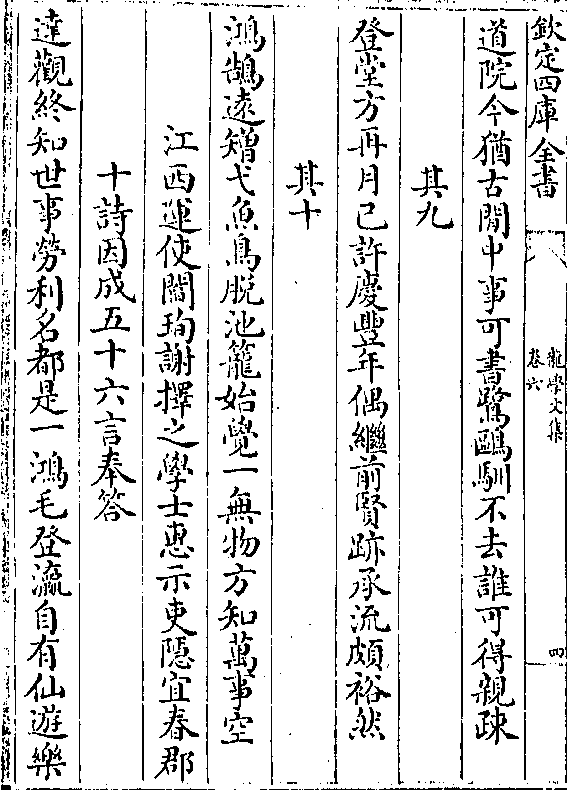 欽定四庫全書
龍學文集
卷六
四
道院今猶古閒中事可書鷺鷗馴不去誰可得親疎
其九
登堂方再月已許慶豐年偶繼前賢跡承流頗裕然
其十
鴻鵠遠矰弋魚鳥脫池籠始覺一無物方知萬事空
江西運使閻珣謝擇之學士惠示吏隱宜春郡
十詩因成五十六言奉答
達觀終知世事勞利名都是一鴻毛登瀛自有仙遊樂